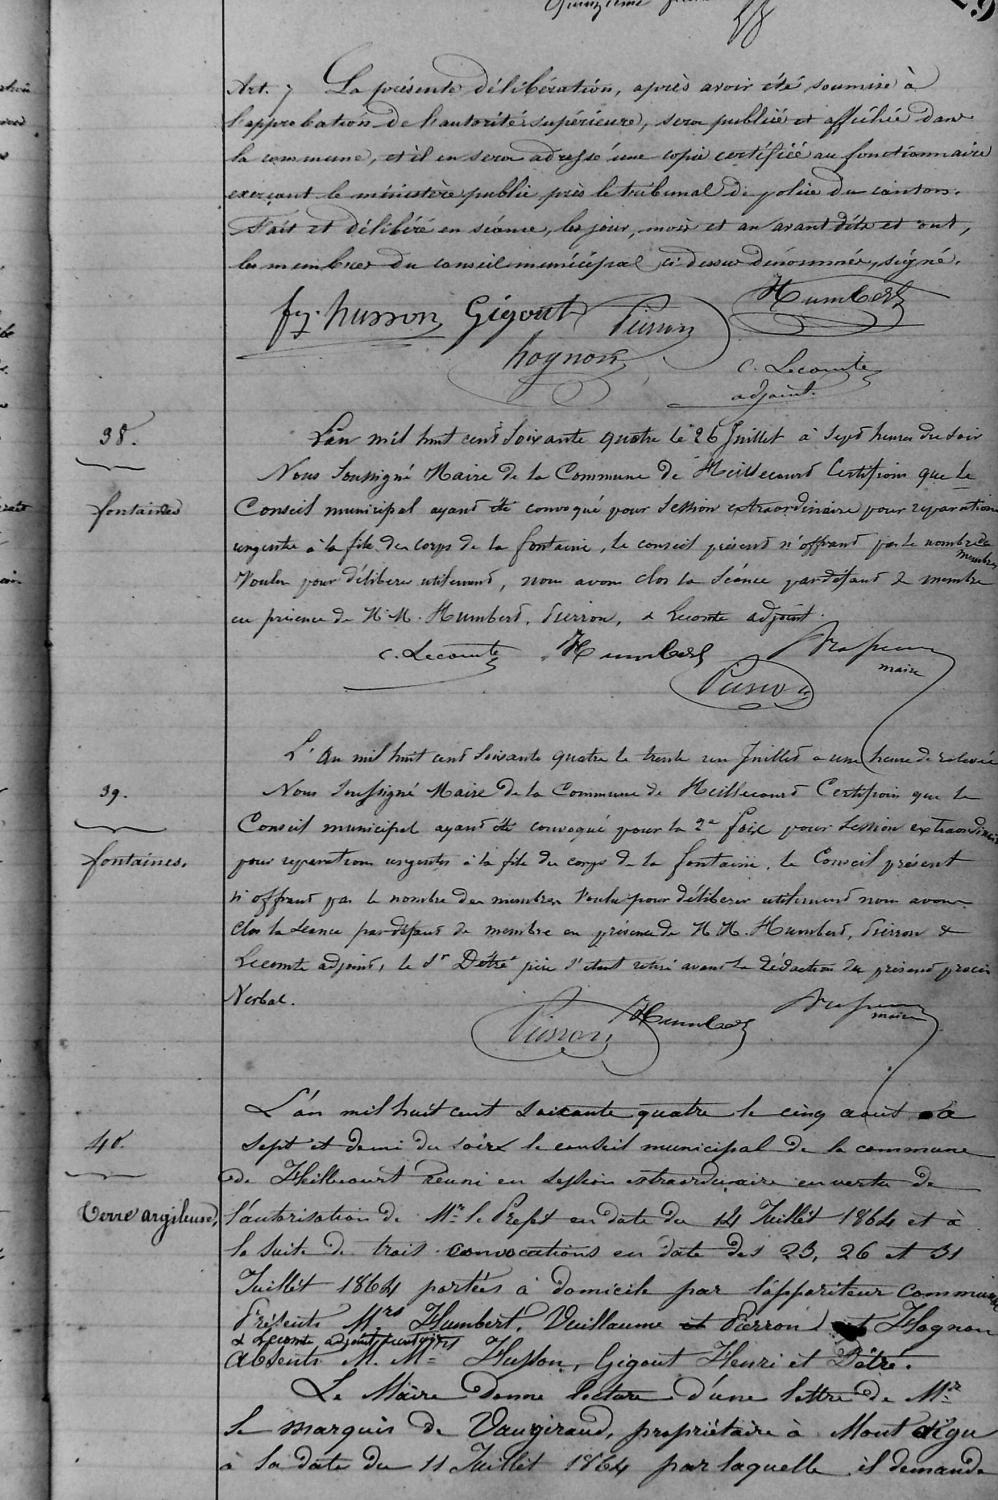 58
Art. 7 La présente délibération, après avoir été soumise à
l'approbation de l'autorité supérieure, sera publiée et affichée dans
la commune, et il en sera adressé une copie certifiée au fonctionnaire
exerçant le ministère public près le tribunal de police du canton.
Fait et délibéré en séance, les jour, mois et an avant dits et ont,
les membres du conseil municipal ci dessus dénommés, signé.
Humbert
husson Gigout Pierron
hognon
C. Lecomte
adjoint.
38.
fontaines
L'an mil huit cent soixante quatre le 26 Juillet à sept heures du soir
Nous soussigné Maire de la Commune de Heillecourt Certifions que le
Conseil municipal ayant été convoqué pour session extraordinaire pour reparations
urgentes à la file des corps de la fontaine, le conseil présent n'offrant pas le nombre de
membres
voulu pour délibérer utilement, nous avons clos la séance par défaut de membre
en présence de M.M. Humbert, Pierron, & Lecomte adjoint.
C. Lecomte Humbert
maire
Pierron
39.
fontaines.
L'an mil huit cent soixante quatre le trente un Juillet a une heure de relevée
Nous soussigné Maire de la Commune de Heillecourt Certifions que le
Conseil municipal ayant été convoqué pour la 2e fois pour session extraordinaire
pour reparations urgentes à la file des corps de la fontaine, le Conseil présent
n'offrant pas le nombre des membres voulu pour délibérer utilement nous avons
clos la séance par défaut de membre en présence de M.M. Humbert, Pierron &
Lecomte adjoint, le Sr Détré père s'étant retiré avant la rédaction du présent procès
Verbal.
Pierron Humbert
maire
40.
Terre argileuse,
L'an mil huit cent soixante quatre le cinq août à
sept et demi du soir le conseil municipal de la commune
de Heillecourt réuni en session extraordinaire en vertu de
l'autorisation de Mr le Prefet en date du 14 Juillet 1864 et à
la suite de trois convocations en date des 23, 26 et 31
Juillet 1864 portées à domicile par l'appariteur communal
Présents Mrs Humbert, Vuillaume et Pierron et Hognon
& Lecomte adjoint
Absents M.M. Husson, Gigout Henri et Détré.
Le Maire donne lecture d'une lettre de Mr
le marquis de Vaugiraud, propriétaire à Mont aigu
à la date du 11 Juillet 1864 par laquelle il demande